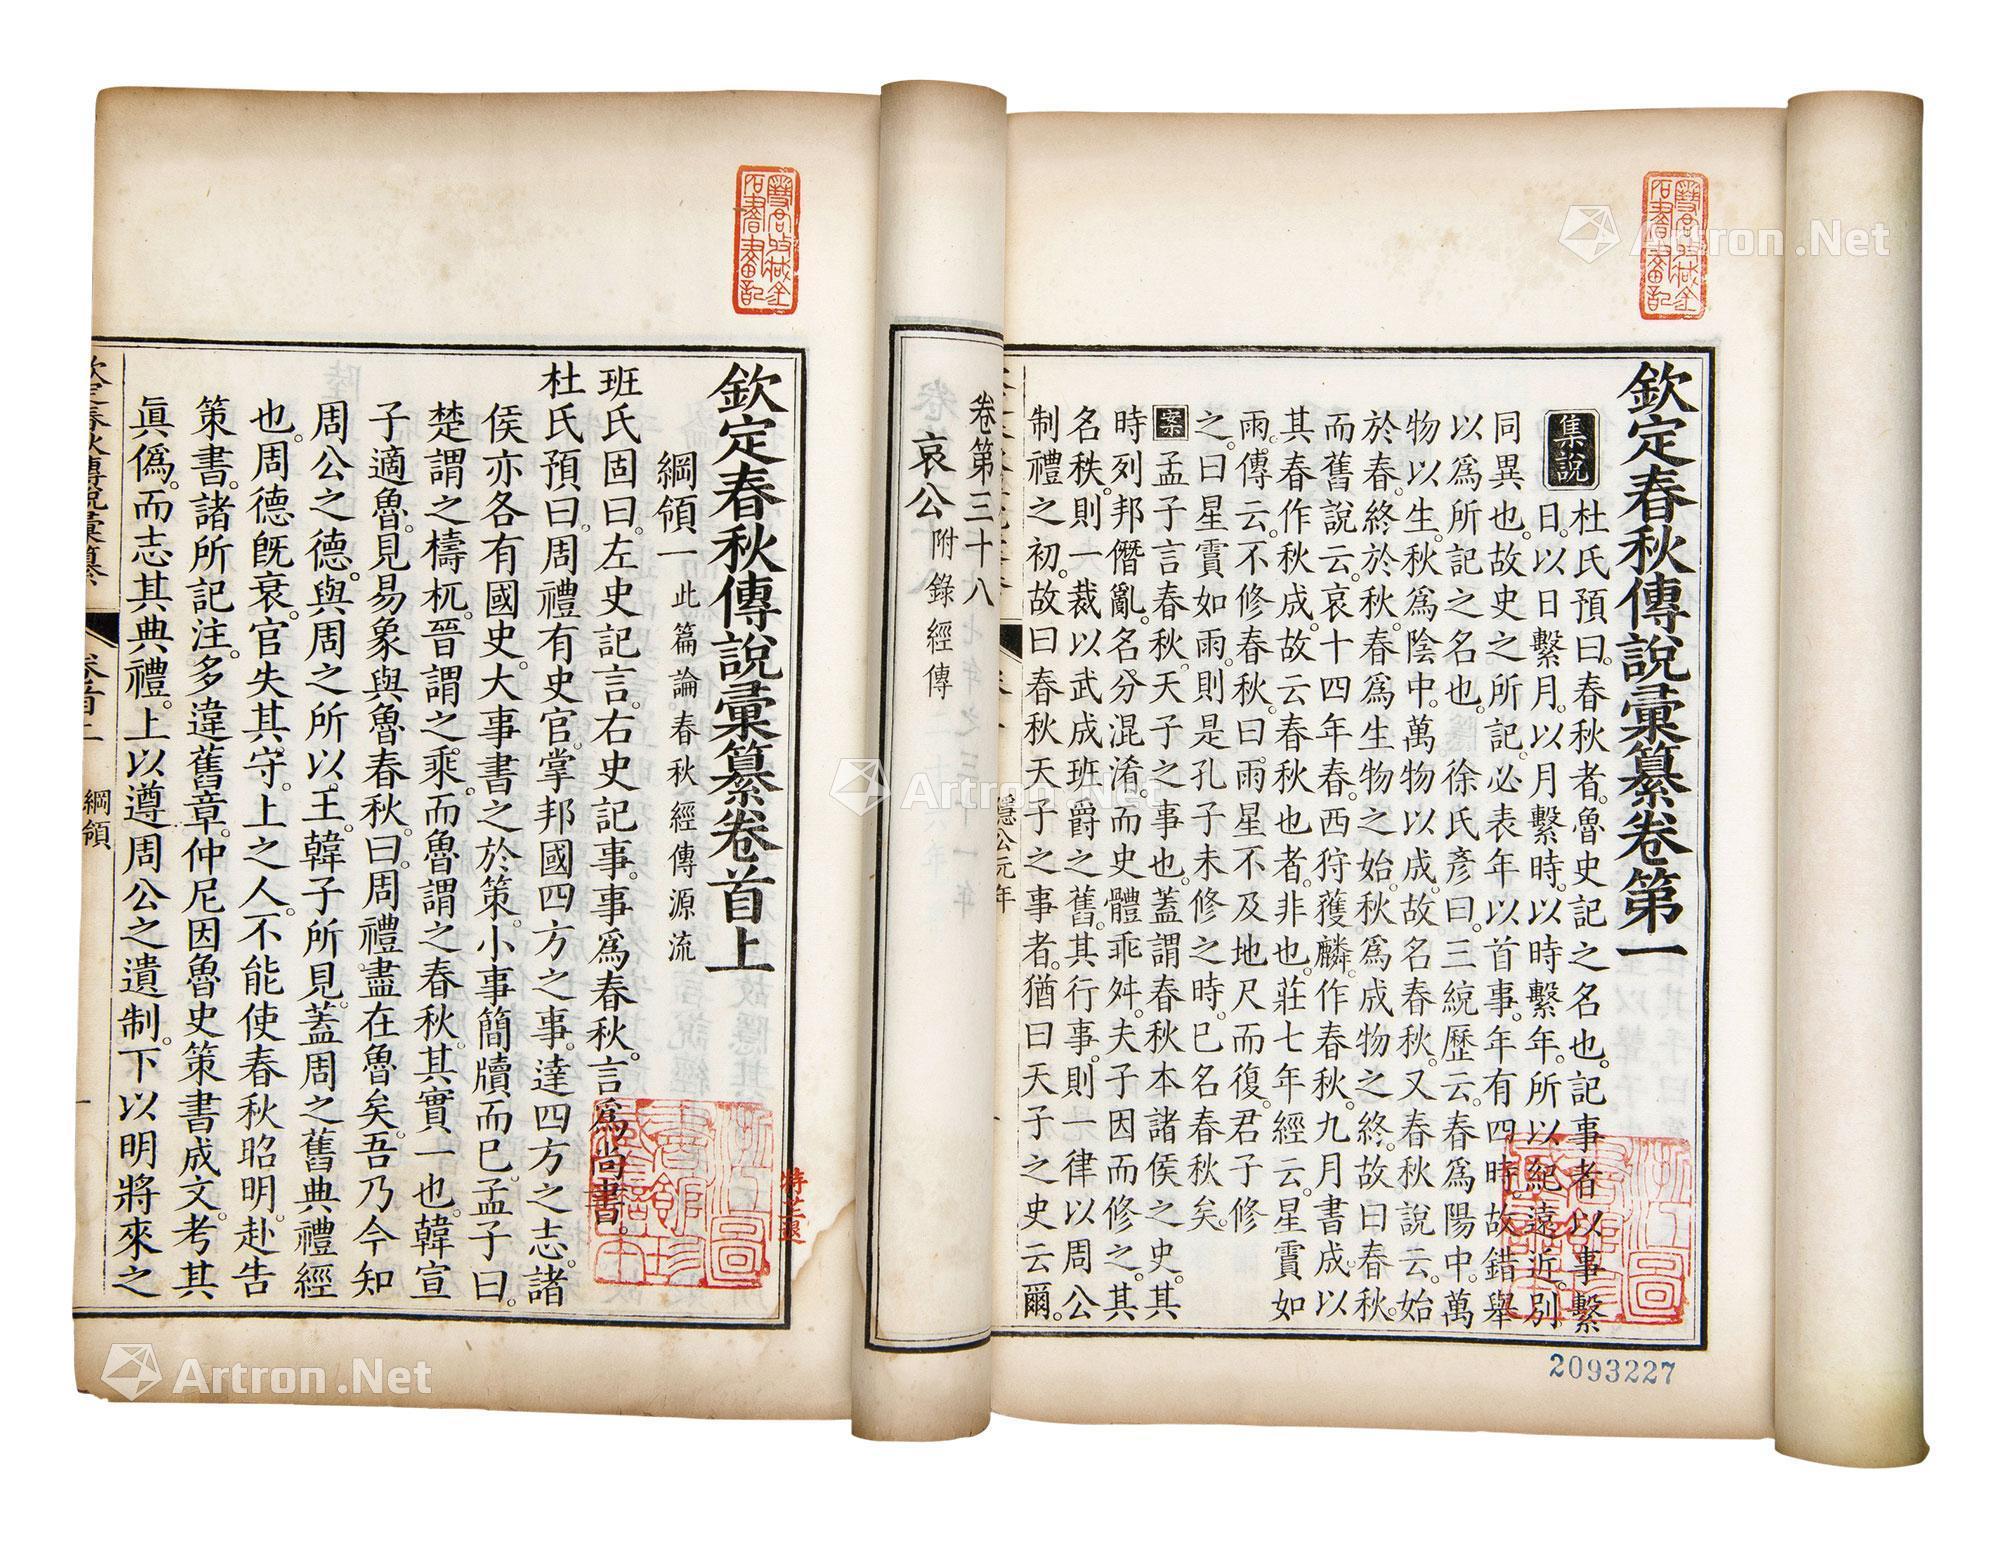 欽定春秋傳說彙纂卷第一
集說
杜氏預曰。春秋者。魯史記之名也。記事者。以事繫
日。以日繫月。以月繫時。以時繫年。所以紀遠近。別
同異也。故史之所記。必表年以首事。年有四時。故錯舉
以為所記之名也。徐氏彥曰。三統歷云。春為陽中。萬
物以生。秋為陰中。萬物以成。故名春秋。又春秋說云。始
於春。終於秋。春為生物之始。秋為成物之終。故曰春秋。
而舊說云。哀十四年春。西狩獲麟。作春秋。九月書成。以
其春作秋成。故云春秋也者。非也。莊七年經云。星霣如
雨。傳云。不修春秋曰。雨星不及地尺而復。君子修
之。曰星霣如雨。則是孔子未修之時。已名春秋矣。
案孟子言春秋。天子之事也。蓋謂春秋本諸侯之史。其
時列邦僭亂。名分混淆。而史體乖舛。夫子因而修之。其
名秩。則一裁以武成班爵之舊。其行事。則一律以周公
制禮之初。故曰春秋天子之事者。猶曰天子之史云爾。
隱公元年
卷第三十八
哀公 附錄經傳
欽定春秋傳說彙纂卷首上
綱領一 此篇論春秋經傳源流
班氏固曰。左史記言。右史記事。事為春秋。言為尚書。
杜氏預曰。周禮有史官。掌邦國四方之事。達四方之志。諸
侯亦各有國史。大事書之於策。小事簡牘而已。孟子曰。
楚謂之檮杌。晉謂之乘。而魯謂之春秋。其實一也。韓宣
子適魯。見易象與魯春秋。曰。周禮盡在魯矣。吾乃今知
周公之德。與周之所以王。韓子所見。蓋周之舊典禮經
也。周德既衰。官失其守。上之人。不能使春秋昭明。赴告
策書。諸所記注。多違舊章。仲尼因魯史策書成文。考其
真偽。而志其典禮。上以遵周公之遺制。下以明將來之
欽定春秋傳說彙纂 卷首上 綱領 一
2093227
Artron.Net
Artron.Net
Artron.Net